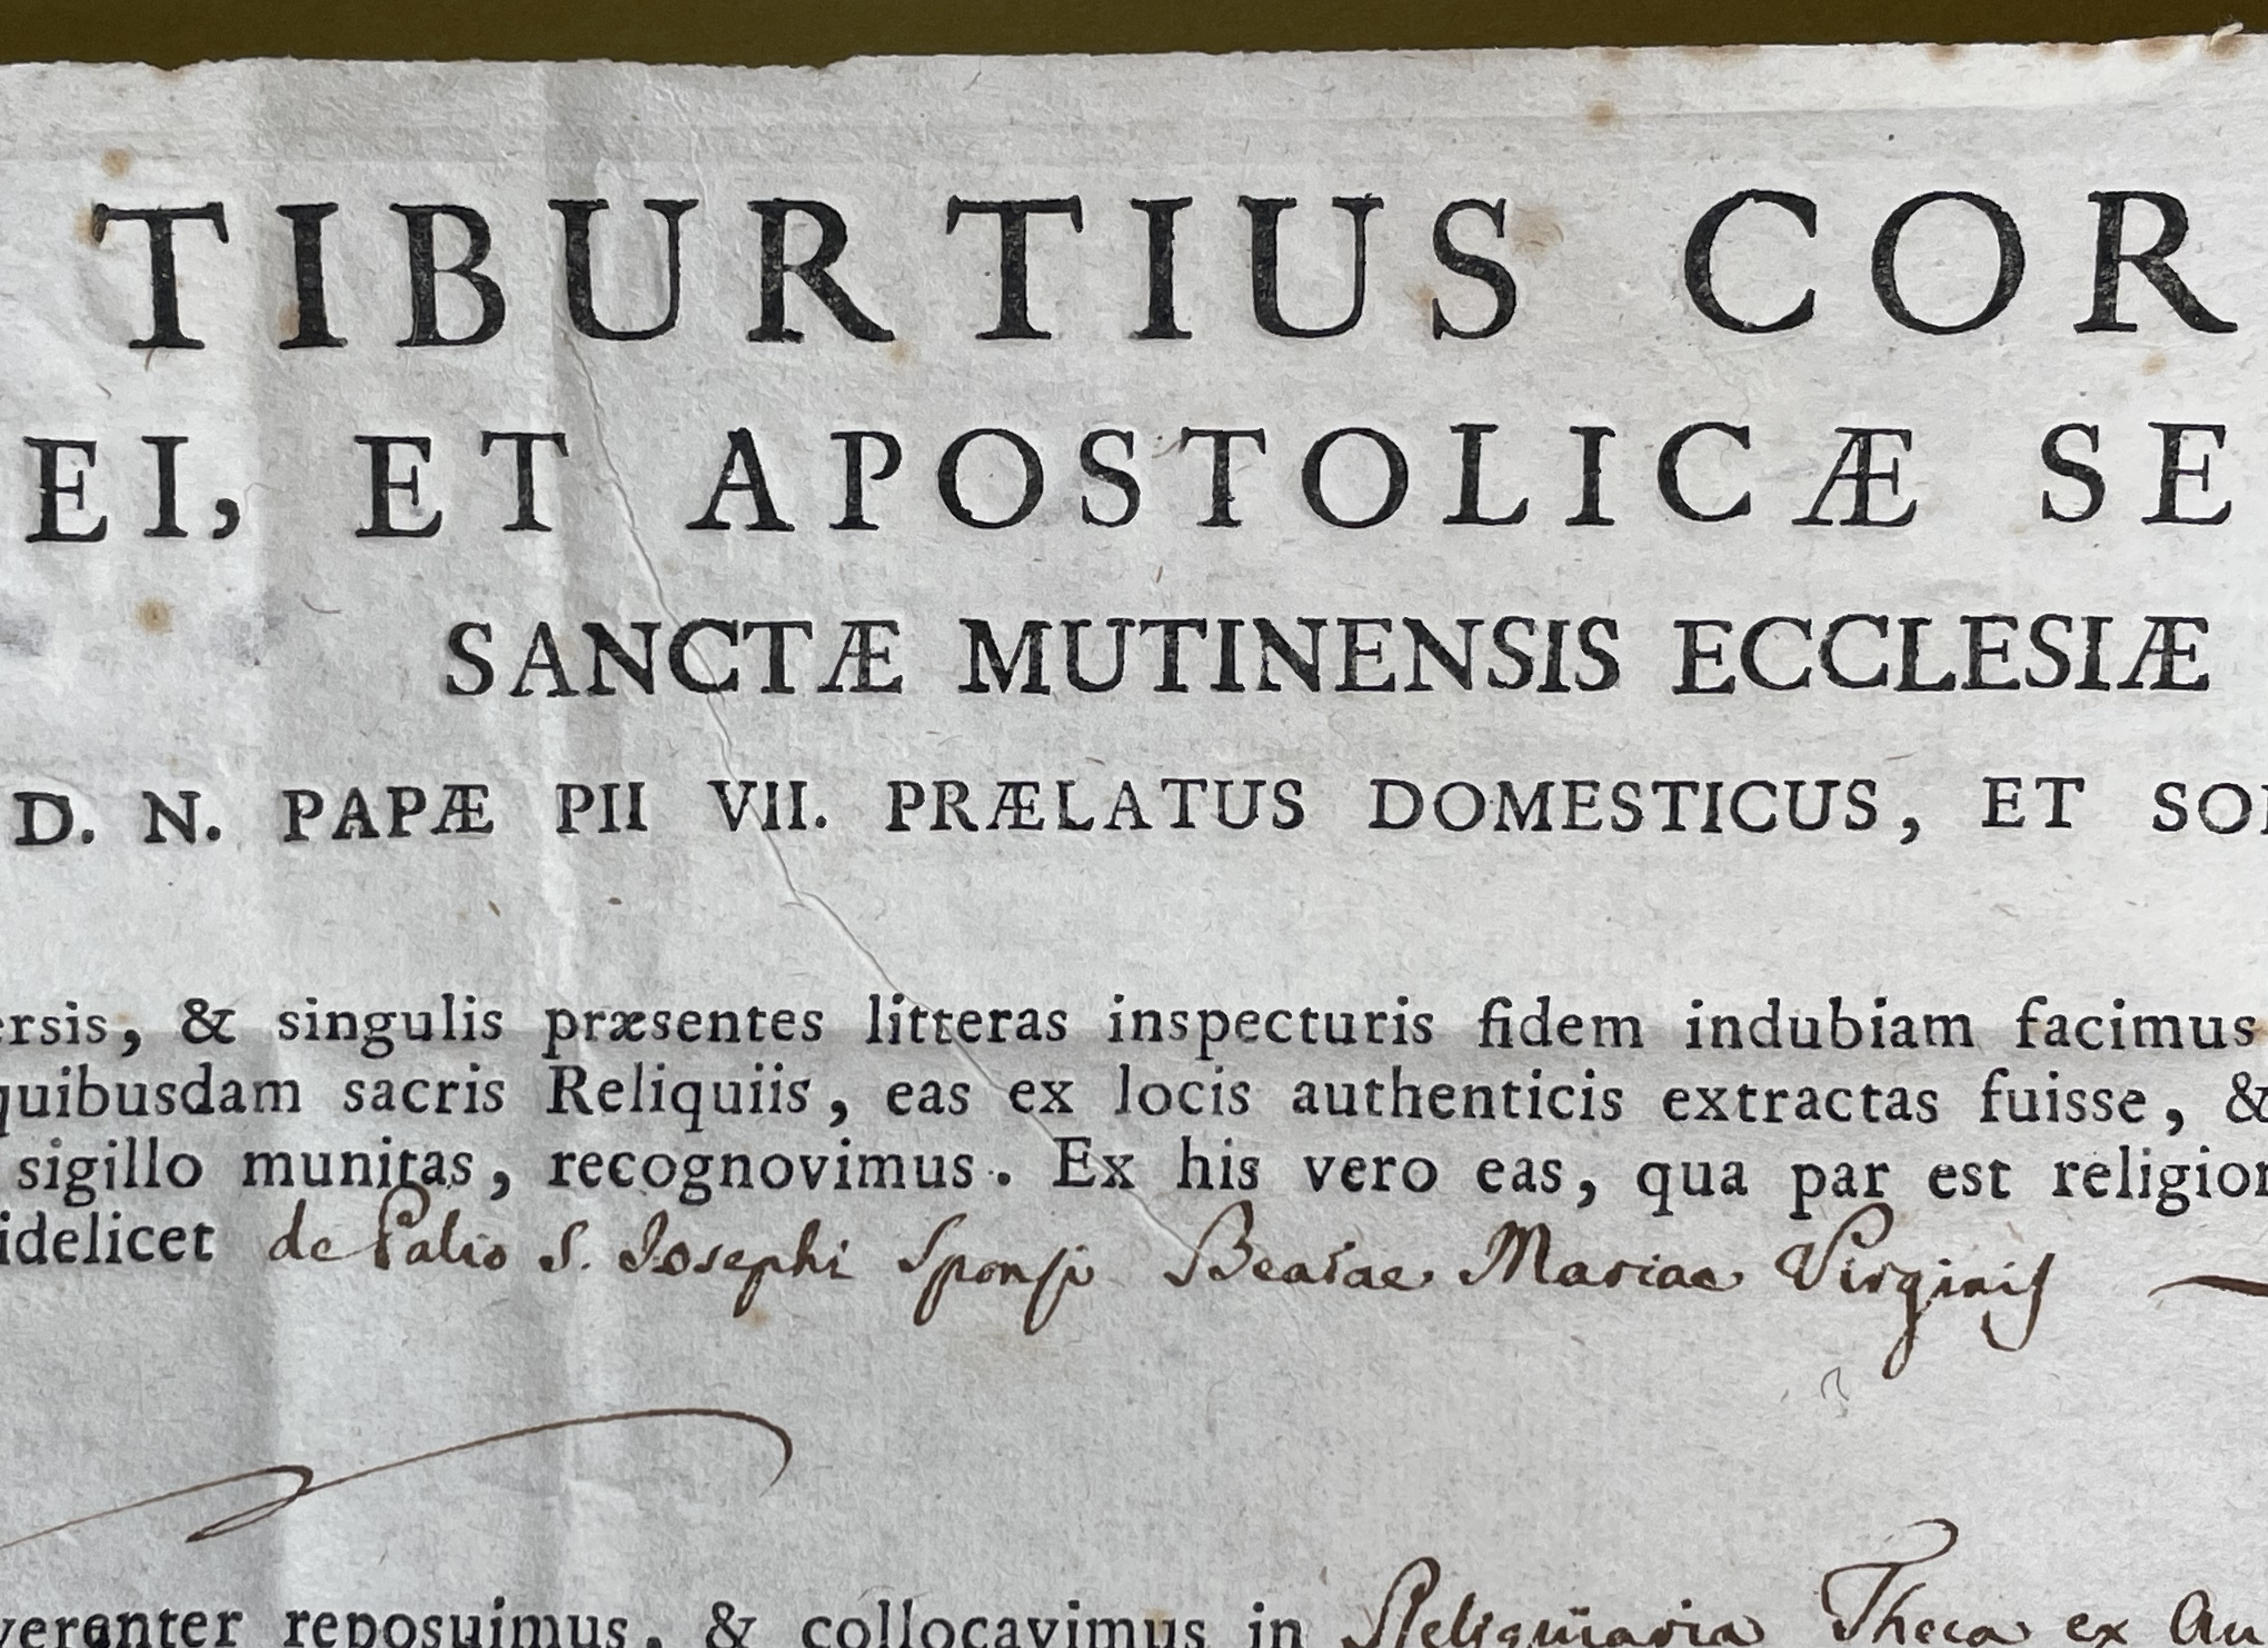 TIBURTIUS COR
EI, ET APOSTOLICÆ SE
SANCTÆ MUTINENSIS ECCLESIÆ
D. N. PAPÆ PII VII. PRÆLATUS DOMESTICUS, ET SO
ersis, & singulis præsentes litteras inspecturis fidem indubiam facimus
quibusdam sacris Reliquiis, eas ex locis authenticis extractas fuisse, &
sigillo munitas, recognovimus. Ex his vero eas, qua par est religion
idelicet de Palio S. Josephi Sponsi Beatae Mariae Virginis
verenter reposuimus, & collocavimus in Reliquiaria Theca ex Au